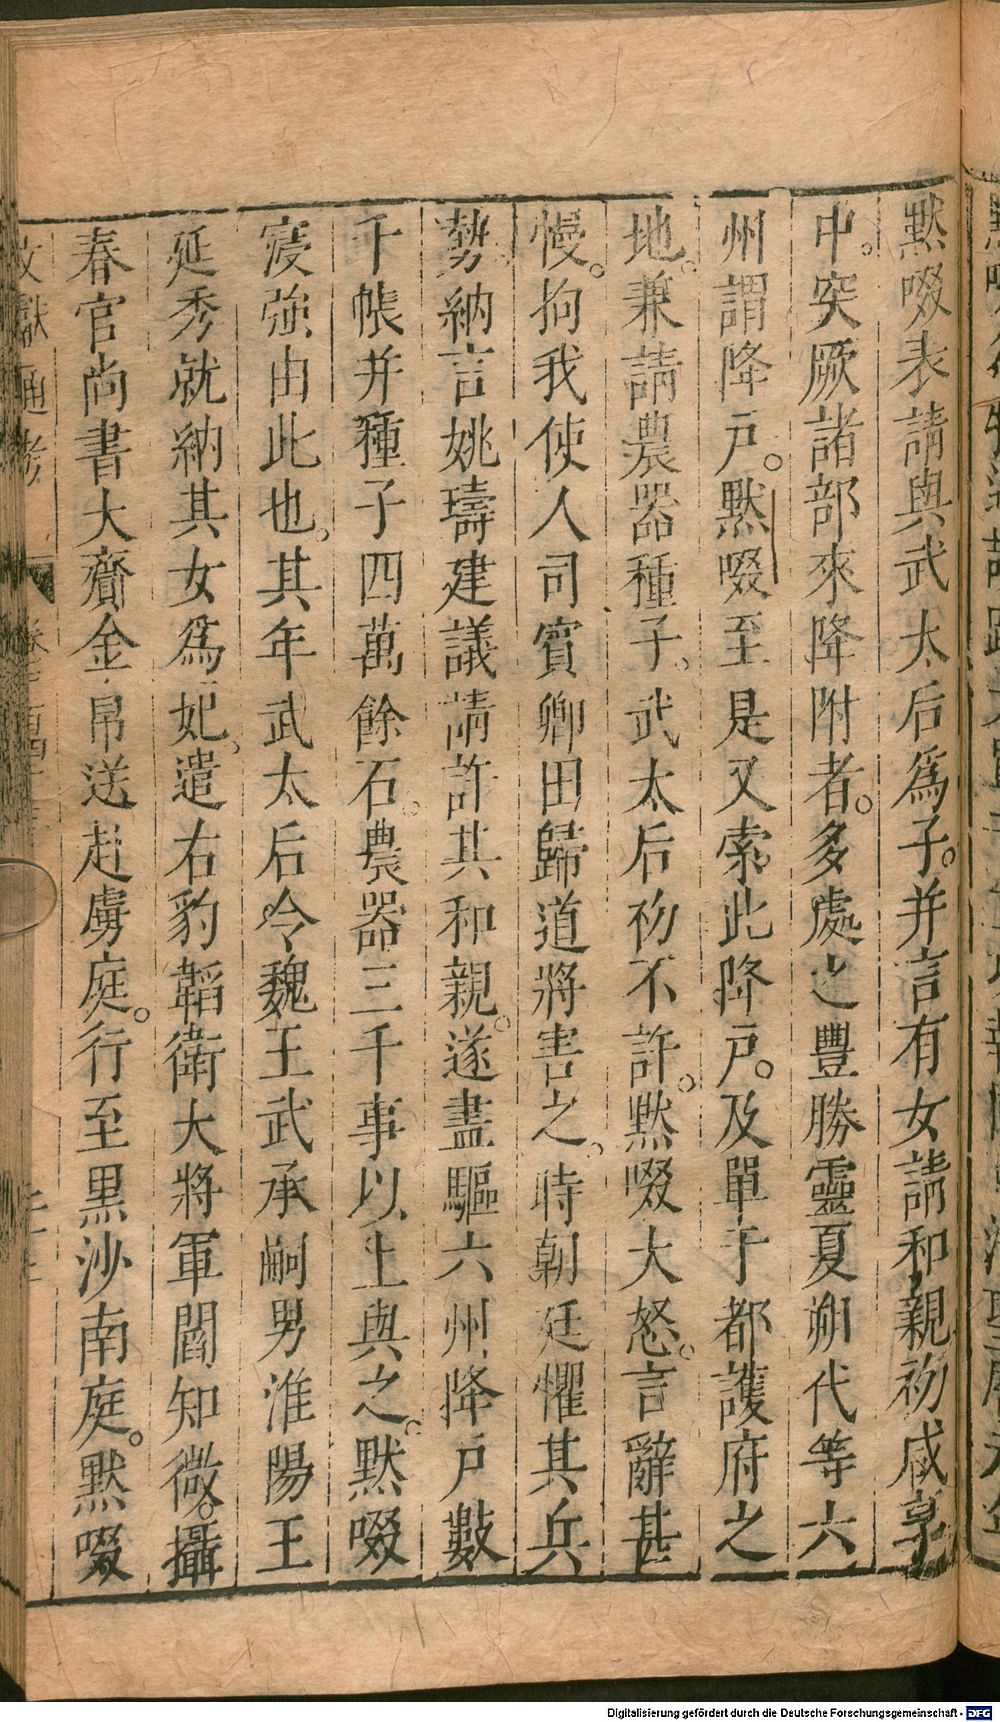 黙啜表請與武太后爲子。并言有女請和親初咸亨
中。突厥諸部來降附者。多處之豐勝靈夏朔代等六
州謂降戶。黙啜至是又索此降戶。及單于都護府之
地。兼請農器種子。武太后初不許。黙啜大怒。言辭甚
慢。拘我使人司賓卿田歸道將害之。時朝廷懼其兵
勢。納言姚璹建議請許其和親。遂盡驅六州降戶數
千帳并種子四萬餘石。農器三千事以上與之。黙啜
寖強由此也。其年武太后令魏王武承嗣男淮陽王
延秀就納其女爲妃。遣右豹韜衛大將軍閻知微。攝
春官尚書大齎金帛送赴虜庭。行至黒沙南庭。黙啜
文獻通考
Digitalisierung gefördert durch die Deutsche Forschungsgemeinschaft - DFG